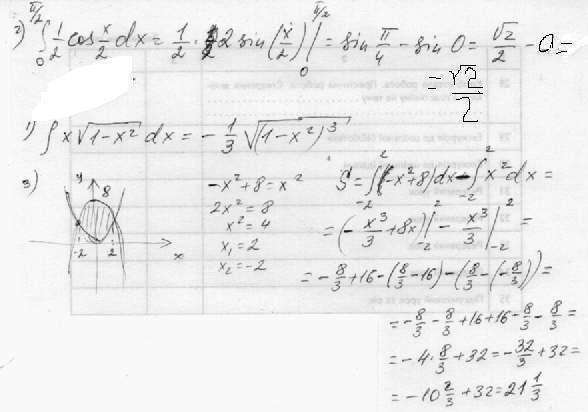 2) ∫₀^{π/2} 1/2 cos x/2 dx = 1/2 · 2 sin(x/2) |₀^{π/2} = sin π/4 − sin 0 = √2/2 − 0 =
= √2/2
1) ∫ x√(1−x²) dx = −1/3 √(1−x²)³
3)
y
8
-2
2
x
−x²+8 = x²
2x² = 8
x² = 4
x₁ = 2
x₂ = −2
S = ∫₋₂² (−x²+8)dx − ∫₋₂² x² dx =
= (−x³/3 + 8x)|₋₂² − x³/3 |₋₂² =
= −8/3 + 16 − (8/3 − 16) − (8/3 − (−8/3)) =
= −8/3 − 8/3 + 16 + 16 − 8/3 − 8/3 =
= −4·8/3 + 32 = −32/3 + 32 =
= −10 2/3 + 32 = 21 1/3